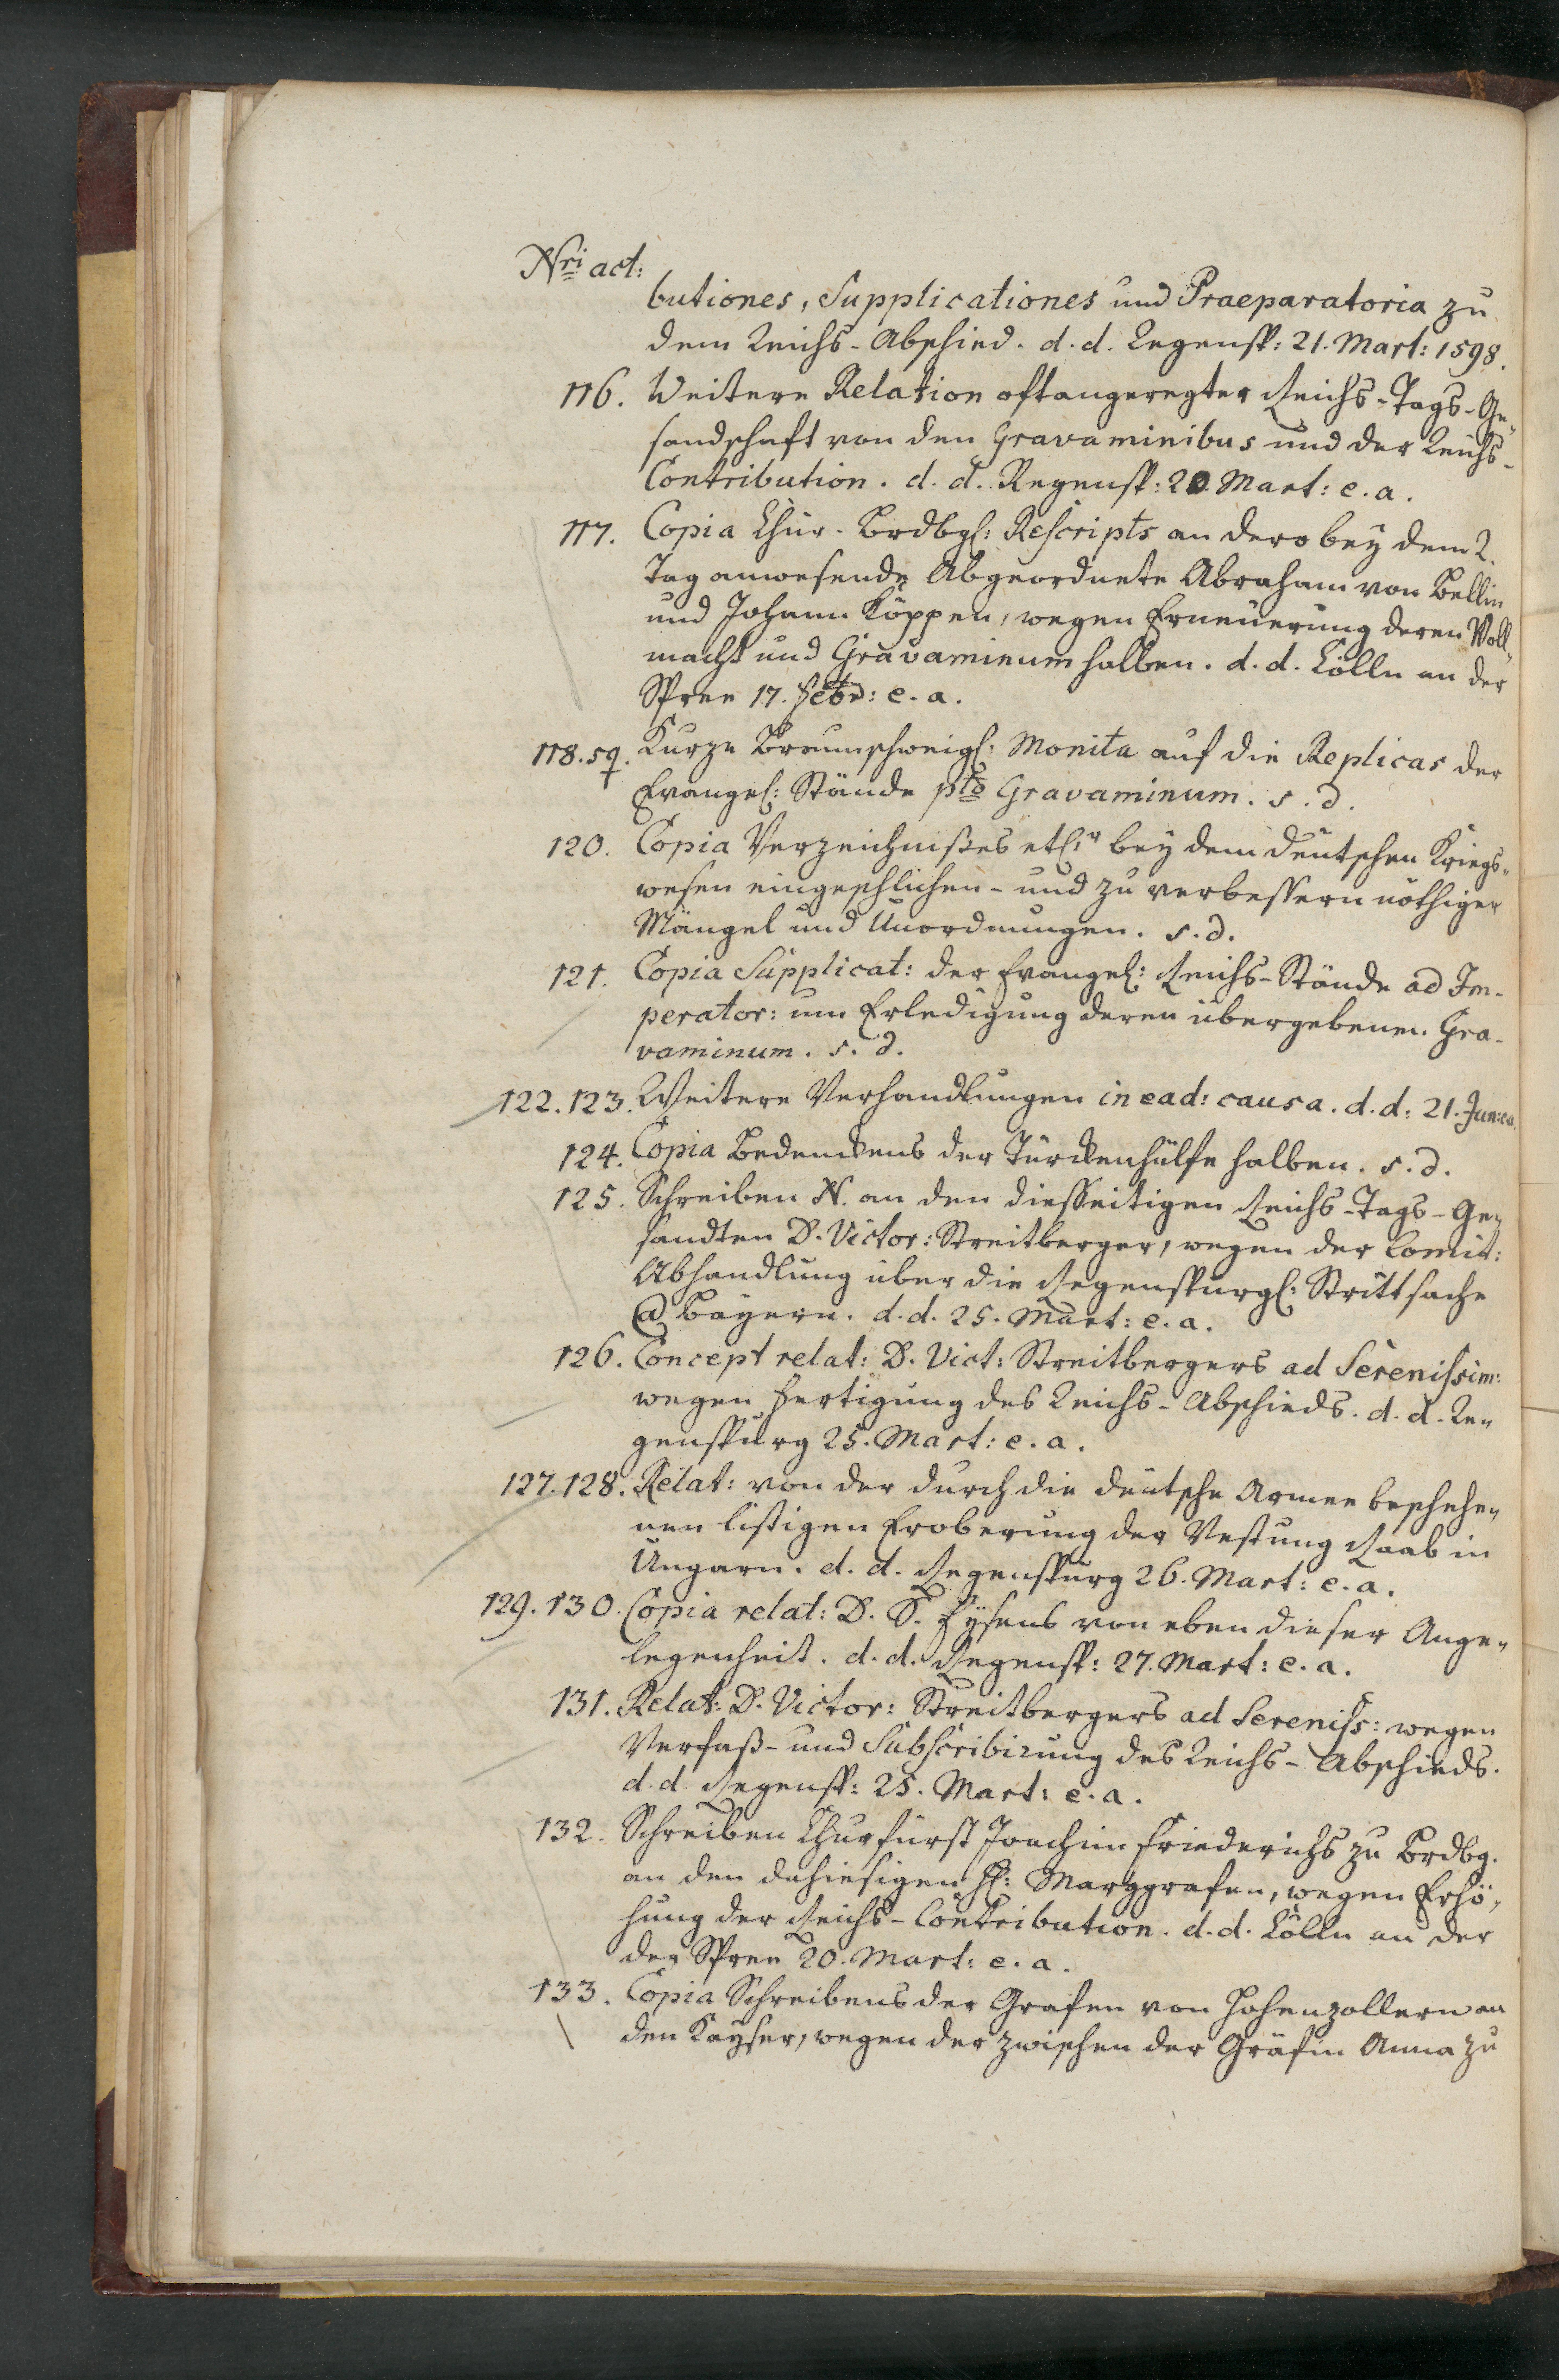 Nri act:
butiones, Supplicationes und Praeparatoria zu
dem Reichs-Abschied. d. d. Regensp: 21. Mart: 1598.
116. Weitere Relation oftangeregter Reichs-Tags-Ge„
sandschaft von den Gravaminibus und der Reichs-
Contribution. d. d. Regensp: 20. Mart: e. a.
117. Copia Chur-Brdbgl: Rescripts an dero bey dem R.
Tag anwesende Abgeordnete Abraham von Bellin
und Johann Köppen, wegen Erneuerung deren Voll„
macht und Gravaminum halben. d. d. Cölln an der
Spree 17. Febr: e. a.
118. sq. Kurze Braunschweigl: Monita auf die Replicas der
Evangel: Stände pto Gravaminum. s. d.
120. Copia Verzeichnißes etl:r bey dem deutschen Kriegs„
wesen eingeschlichen- und zu verbessern nöthiger
Mängel und Unordnungen. s. d.
121. Copia Supplicat: der Evangel: Reichs-Stände ad Im-
perator: um Erledigung deren übergebenen Gra-
vaminum. s. d.
122. 123. Weitere Verhandlungen in ead: causa. d. d: 21. Jun: e.a.
124. Copia Bedenckens der Türckenhülfe halben. s. d.
125. Schreiben N. an den diesseitigen Reichs-Tags-Ge„
sandten D. Victor: Streitberger, wegen der Comit:
Abhandlung über die Regenspurgl: Strittsache
Ca Bayern. d. d. 25. Mart: e. a.
126. Concept relat: D. Vict: Streitbergers ad Serenissim:
wegen Fertigung des Reichs-Abschieds. d. d. Re„
genspurg 25. Mart: e. a.
127. 128. Relat: von der durch die deutsche Armee beschehe„
nen listigen Eroberung der Vestung Raab in
Ungarn. d. d. Regenspurg 26. Mart: e. a.
129. 130. Copia relat: D. S. Eysens von eben dieser Ange„
legenheit. d. d. Regensp: 27. Mart: e. a.
131. Relat: D. Victor: Streitbergers ad Sereniss: wegen
Verfaß- und Subscribirung des Reichs-Abschieds.
d. d Regensp: 25. Mart: e. a.
132. Schreiben Churfürst Joachim Friederichs zu Brdbg.
an den dahiesigen H: Marggrafen, wegen Erhö„
hung der Reichs-Contribution. d. d. Cölln an der
der Spree 20. Mart: e. a.
133. Copia Schreibens der Grafen von Hohenzollern an
den Kayser, wegen der zwischen der Gräfin Anna zu